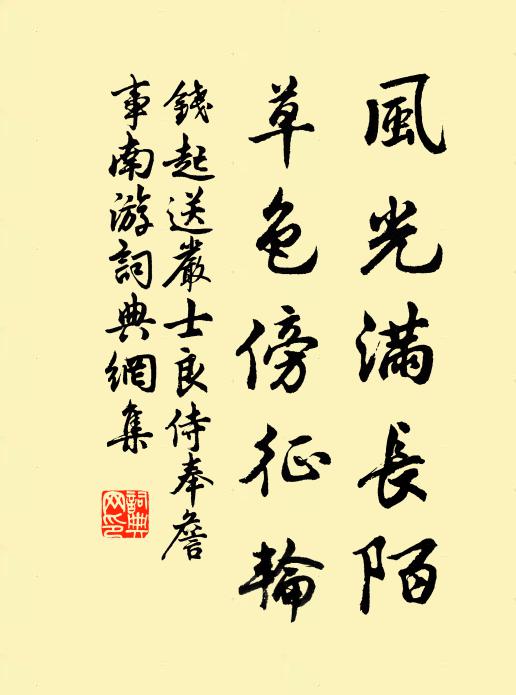 風光滿長陌
草色傍征輪
錢起送嚴士良侍奉詹
事南游詞典網集
詞典
网印